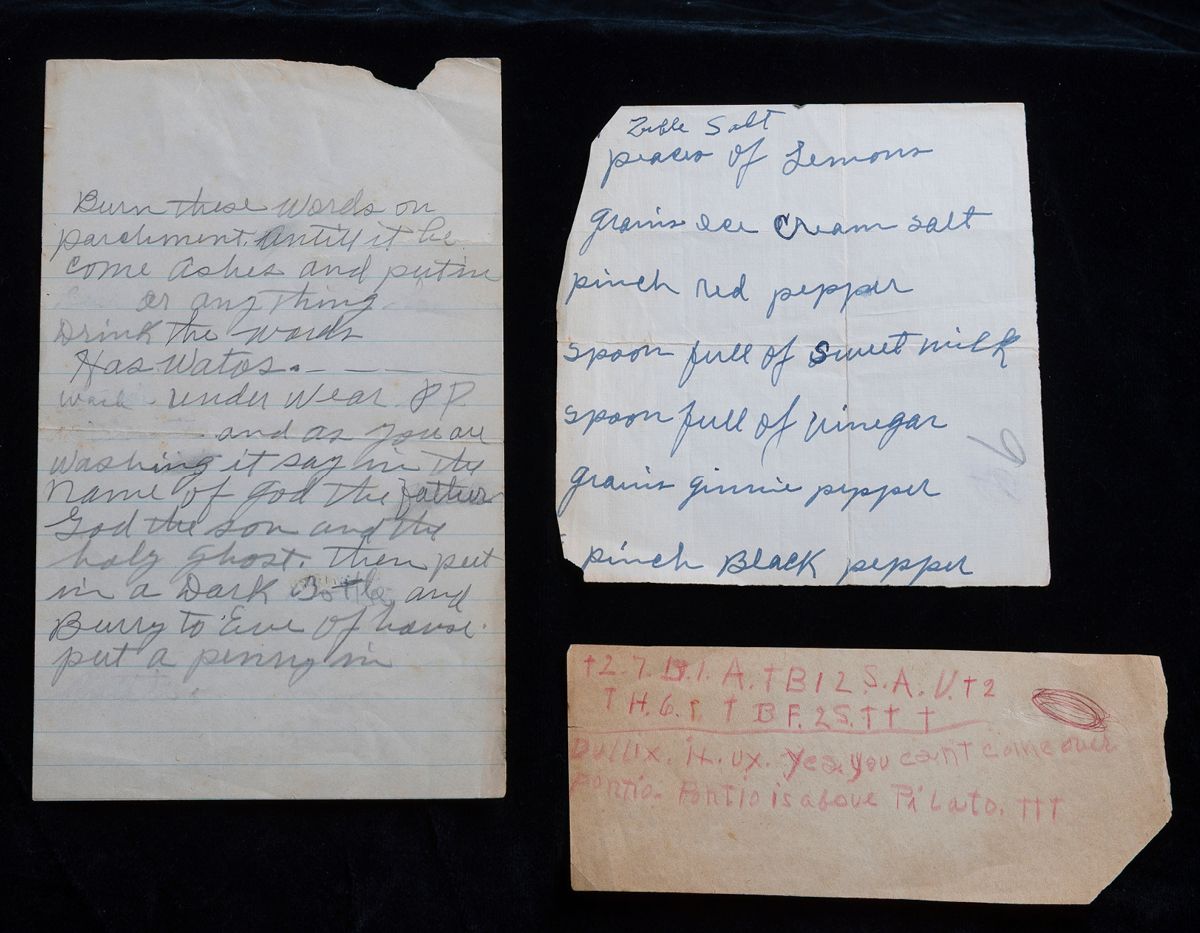 Burn these words on
parchment. Antill it be
come Ashes and put in
or any thing
Drink the words
Has Watos. - - - -
wash under wear. P P
and as you are
washing it say in the
Name of god the father
God the son and the
holy Ghost. Then put
in a Dark Bottle and
Burry to Eive of house.
put a penny in
Salt
peaces of Lemons
grains ice Cream salt
pinch red pepper
spoon full of sweet milk
spoon full of vinegar
grains ginnie pepper
pinch Black pepper
†2.7. I. A. †B12 S. A. V. †2
† H. G. † B F. 2S. † † †
Dullix. ix. ux. Yea, you can't come over
Pontio. Pontio is above Pilato. †††